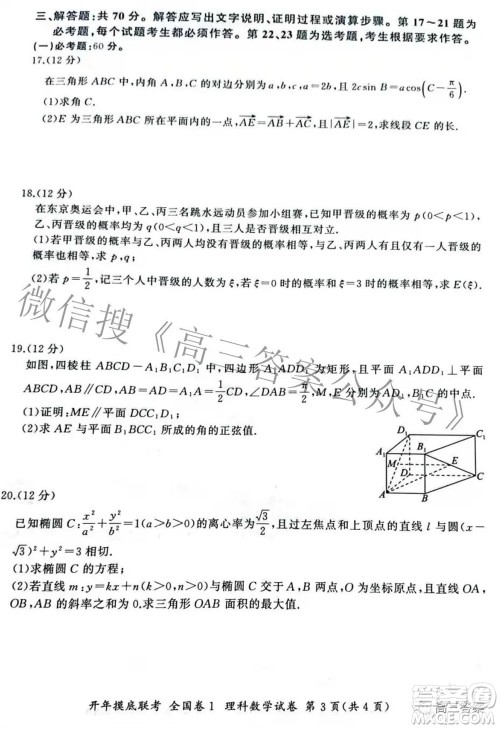 三、解答题:共 70 分。解答应写出文字说明、证明过程或演算步骤。第 17~21 题为
必考题,每个试题考生都必须作答。第 22、23 题为选考题,考生根据要求作答。
(一)必考题:60 分。
17.(12 分)
在三角形 ABC 中,内角 A,B,C 的对边分别为 a,b,c,a=2,且 2csin B=acos(C-π/6).
(1)求角 C.
(2)E 为三角形 ABC 所在平面内的一点,AE=AB+AC,且|AE|=2,求线段 CE 的长.
18.(12 分)
在东京奥运会中,甲、乙、丙三名跳水运动员参加小组赛,已知甲晋级的概率为 p(0<p<
1),乙、丙晋级的概率均为 q(0<q<1),且三人是否晋级相互独立.
(1)若甲晋级的概率与乙、丙两人均没有晋级的概率相等,与乙、丙两人有且仅有一人晋级
的概率也相等,求 p,q;
(2)若 p=1/2,记三个人中晋级的人数为 ξ,若 ξ=0 时的概率和 ξ=3 时的概率相等,求 E(ξ).
19.(12 分)
如图,四棱柱 ABCD-A₁B₁C₁D₁ 中,四边形 A₁ADD₁ 为矩形,且平面 A₁ADD₁⊥平面
1/2CD,∠DAB=π/2,M,E 分别为 AD₁,B₁C 的中点.
(1)证明:ME∥平面 ABCD.
(2)求 AE 与平面 B₁BCC₁ 所成的角的正弦值.
D₁
C₁
A₁
B₁
M
E
D
C
A
B
20.(12 分)
已知椭圆 C:x²/a²+y²/b²=1(a>b>0)的离心率为√3/2,且过焦点和上顶点的直线 l 与圆(x-
√3)²+y²=3 相切.
(1)求椭圆 C 的方程;
(2)若直线 m:y=kx+n(k>0)与椭圆 C 交于 A,B 两点,O 为坐标原点,且直线 OA,OB
的斜率之和为 0,求三角形 OAB 面积的最大值.
开年摸底联考 全国卷 1 理科数学试卷 第 3 页(共 4 页)
高三答案
微信搜《高三答案公众号》